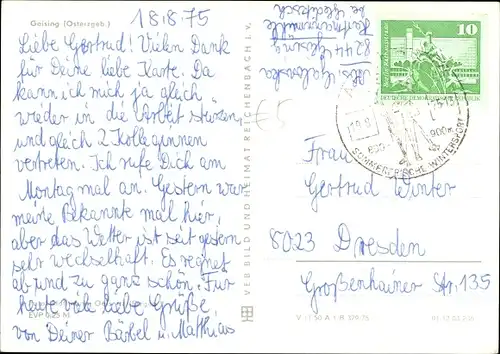 Geising (Osterzgeb.)
18.8.75
Liebe Gertrud! Vielen Dank
für Deine liebe Karte. Da
kann ich mich ja gleich
wieder in die Arbeit stürzen
und gleich 2 Kolleginnen
vertreten. Ich rufe Dich am
Montag mal an. Gestern war
meine Bekannte mal hier,
aber das Wetter ist seit gestern
sehr wechselhaft. Es regnet
ab und zu ganz schön. Für
heute viele liebe Grüße,
von Deiner Bärbel u. Matthias
EVP 0,25 M
VEB BILD UND HEIMAT REICHENBACH I. V.
8244 Geising
10
DEUTSCHE DEMOKRATISCHE REPUBLIK
SOMMERFRISCHE WINTERSPORT
Frau
Gertrud Winter
8023 Dresden
Großenhainer Str. 135